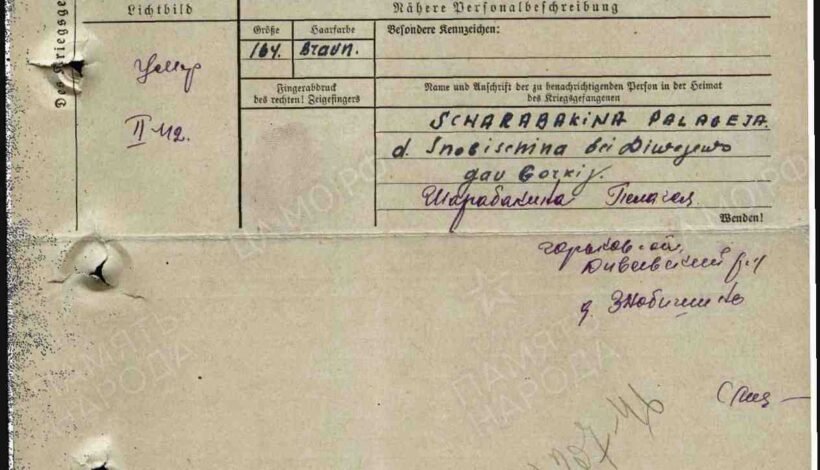 Lichtbild
Nähere Personalbeschreibung
Des Kriegsge
Größe
Haarfarbe
Besondere Kennzeichen:
164.
Braun.
Fingerabdruck
des rechten! Zeigefingers
Name und Anschrift der zu benachrichtigenden Person in der Heimat
des Kriegsgefangenen
II 42.
SCHARABAKINA PALAGEJA.
d. Snobischina bei Diwejewo
gau Gorkij.
Шарабакина Пелагея
Wenden!
Горьковской
Дивеевский р-н
д. Знобишино
ЦАМО.РФ
ПАМЯТЬ
НАРОДА
ПАМЯТЬ
НАРОДА